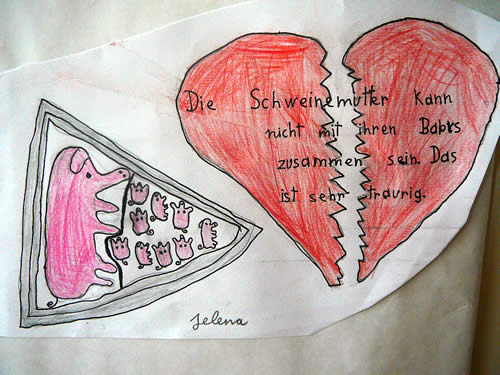 Die Schweinemutter kann
nicht mit ihren Babys
zusammen sein. Das
ist sehr traurig.
Jelena